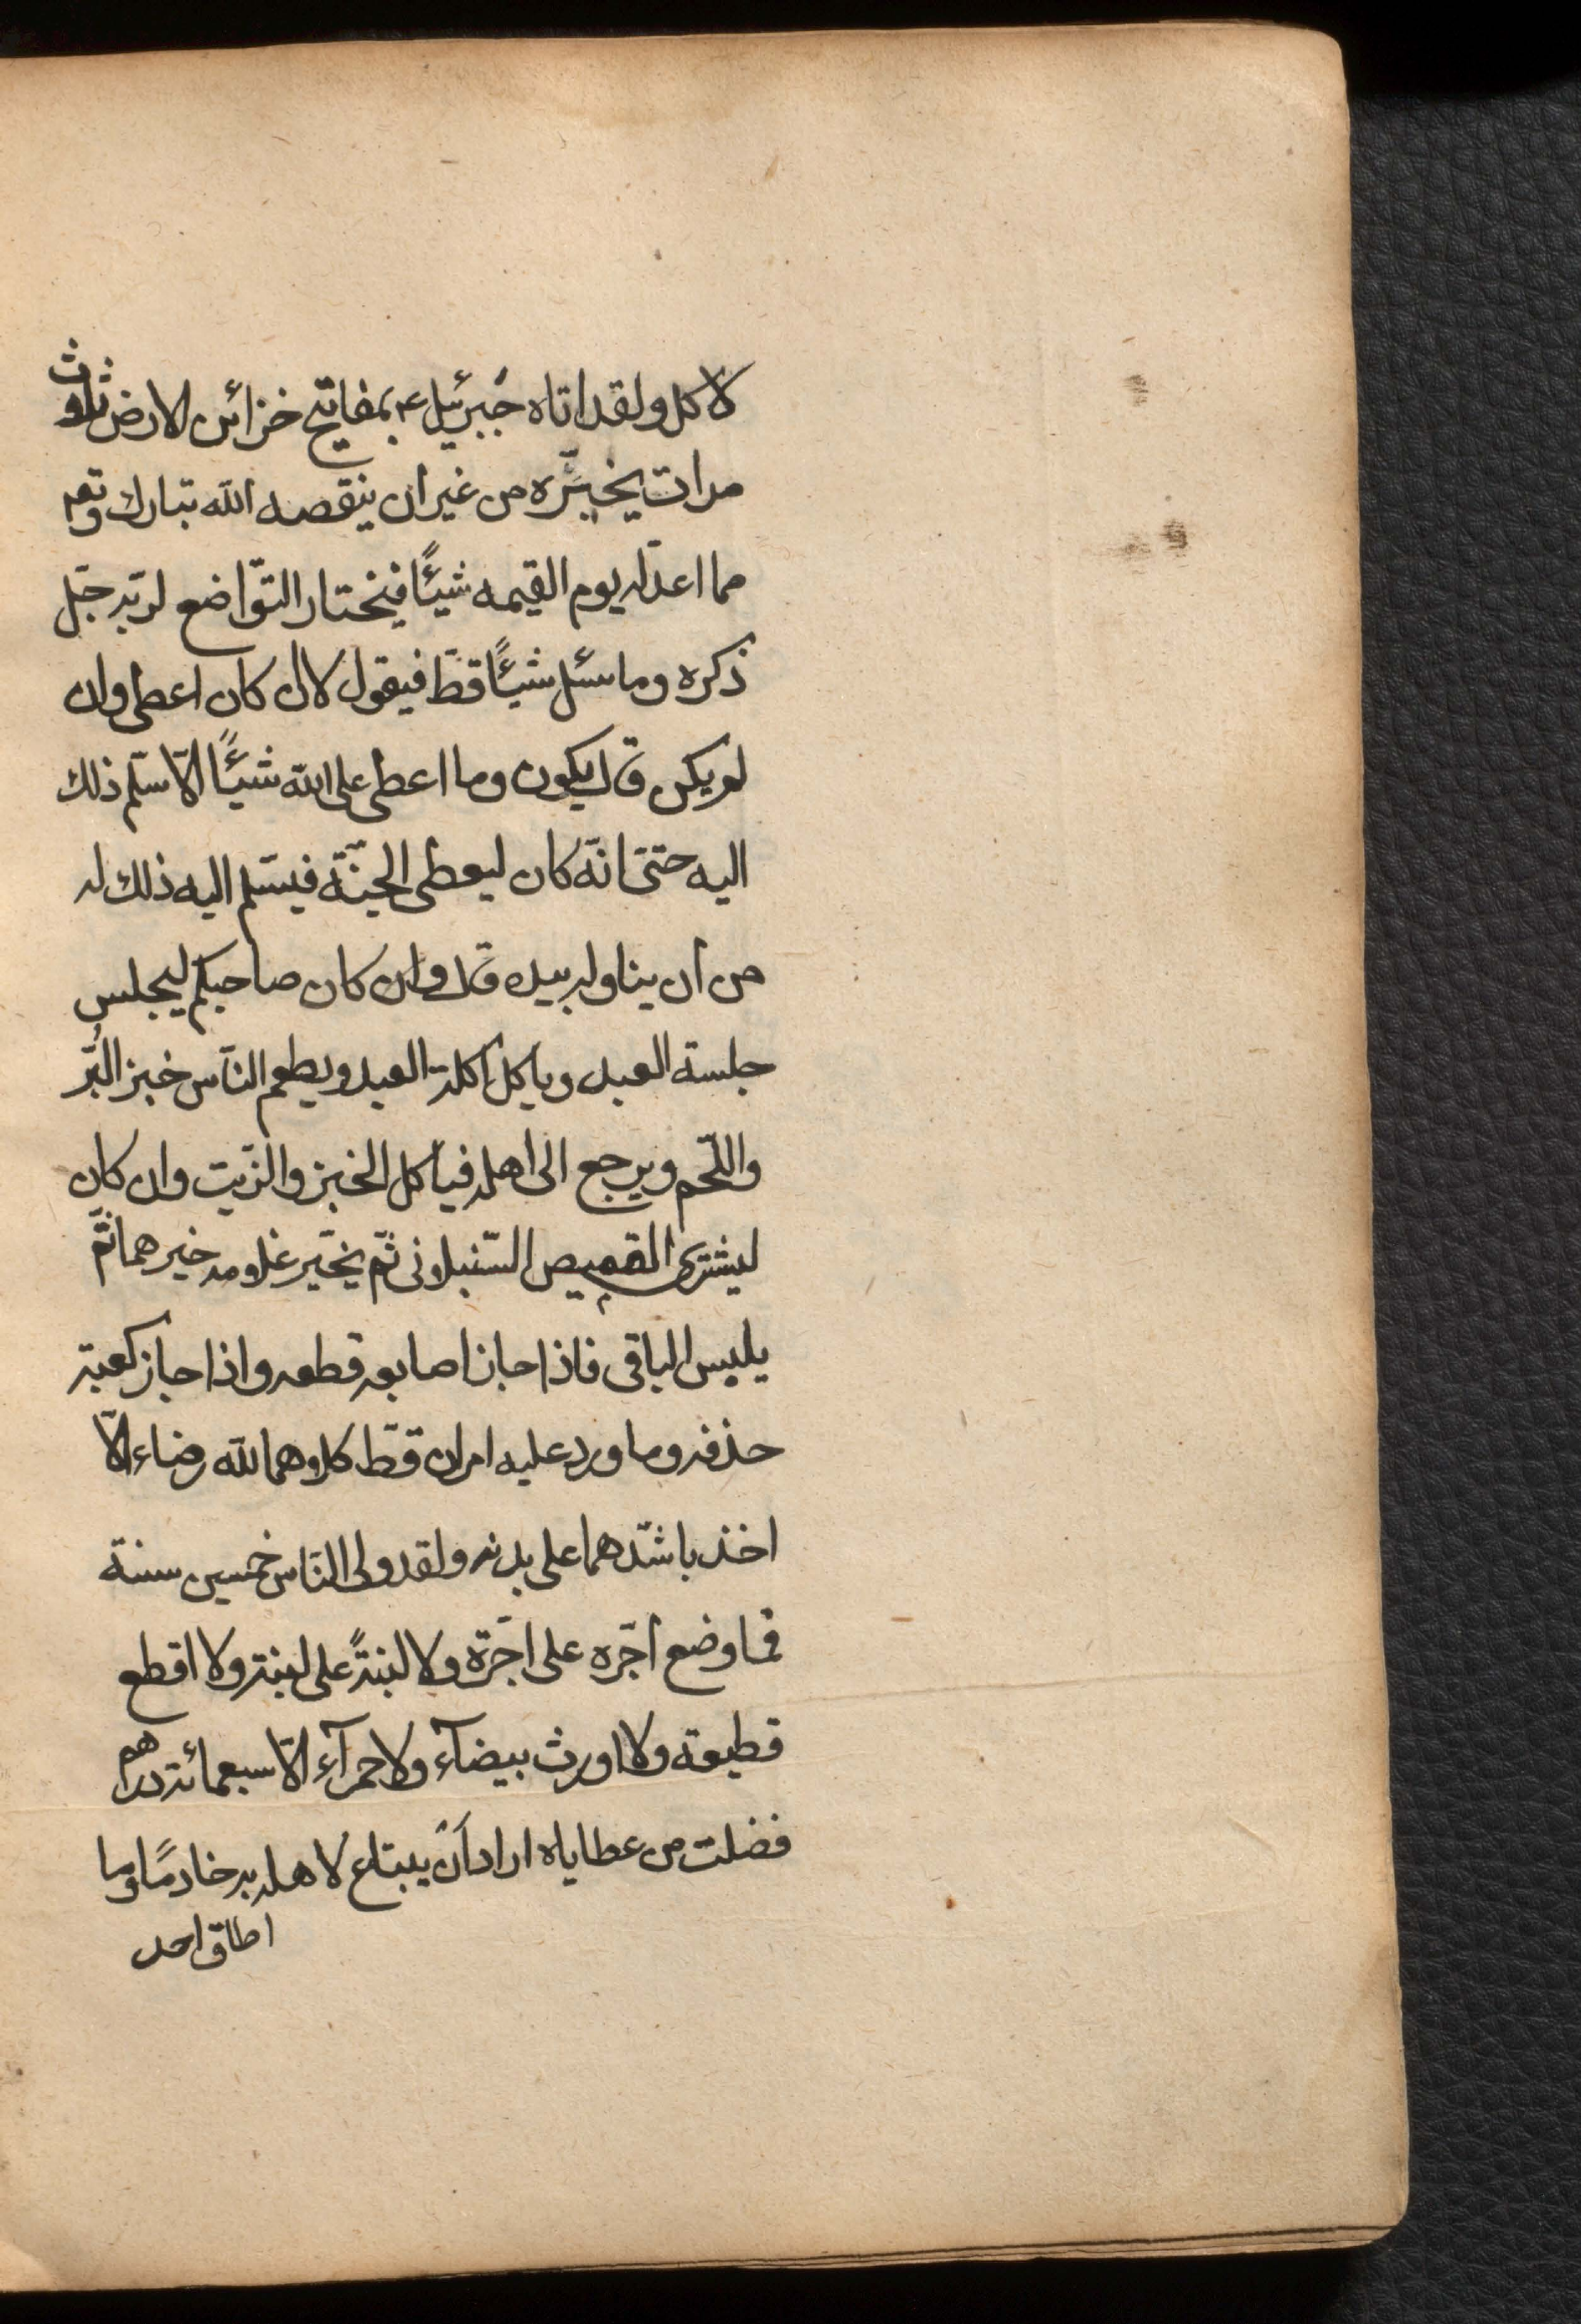 لاكل ولقد اتاه جبرئيل ع بمفاتيح خزائن الارض ثلوث
مرات يخيّره من غير ان ينقصه الله تبارك وتعم
مما اعدّ له يوم القيمه شيئًا فيختار التوّاضع لربّه جّل
ذكره وما سئل شيئًا قطّ فيقول لا ان كان اعطى وان
لم يكن قال يكون وما اعطى على الله شيئًا الّا سلّم ذلك
اليه حتّى انّه كان ليعطى الجنّة فيسّلم اليه ذلك له
من ان يناوله بيده قال وان كان صاحبكم ليجلس
جلسة العبد وياكل اكلة العبد ويطعم النّاس خبز البُّر
واللّحم ويرجع الى اهله فياكل الخبز والزّيت وان كان
ليشترى القميص السّنبلونى ثّم يخيّر غلومه خيرهما ثّم
يلبس الباقى فاذا جاز اصابعه قطعه واذا جاز كعبته
حذفه وما ورد عليه امران قطّ كلوهما لله رضاء الّا
اخذ باشدّهما على بدنه ولقد ولى النّاس خمسين سنة
فما وضع اجّره على اجّرة ولا لبنةً على لبنة ولا اقطع
قطيعة ولا اورث بيضآء ولا حمرآء الّا سبعمائة دراهم
فضلت من عطاياه اراد اَنْ يبتاع لاهله به خادمًا وما
اطاق احد